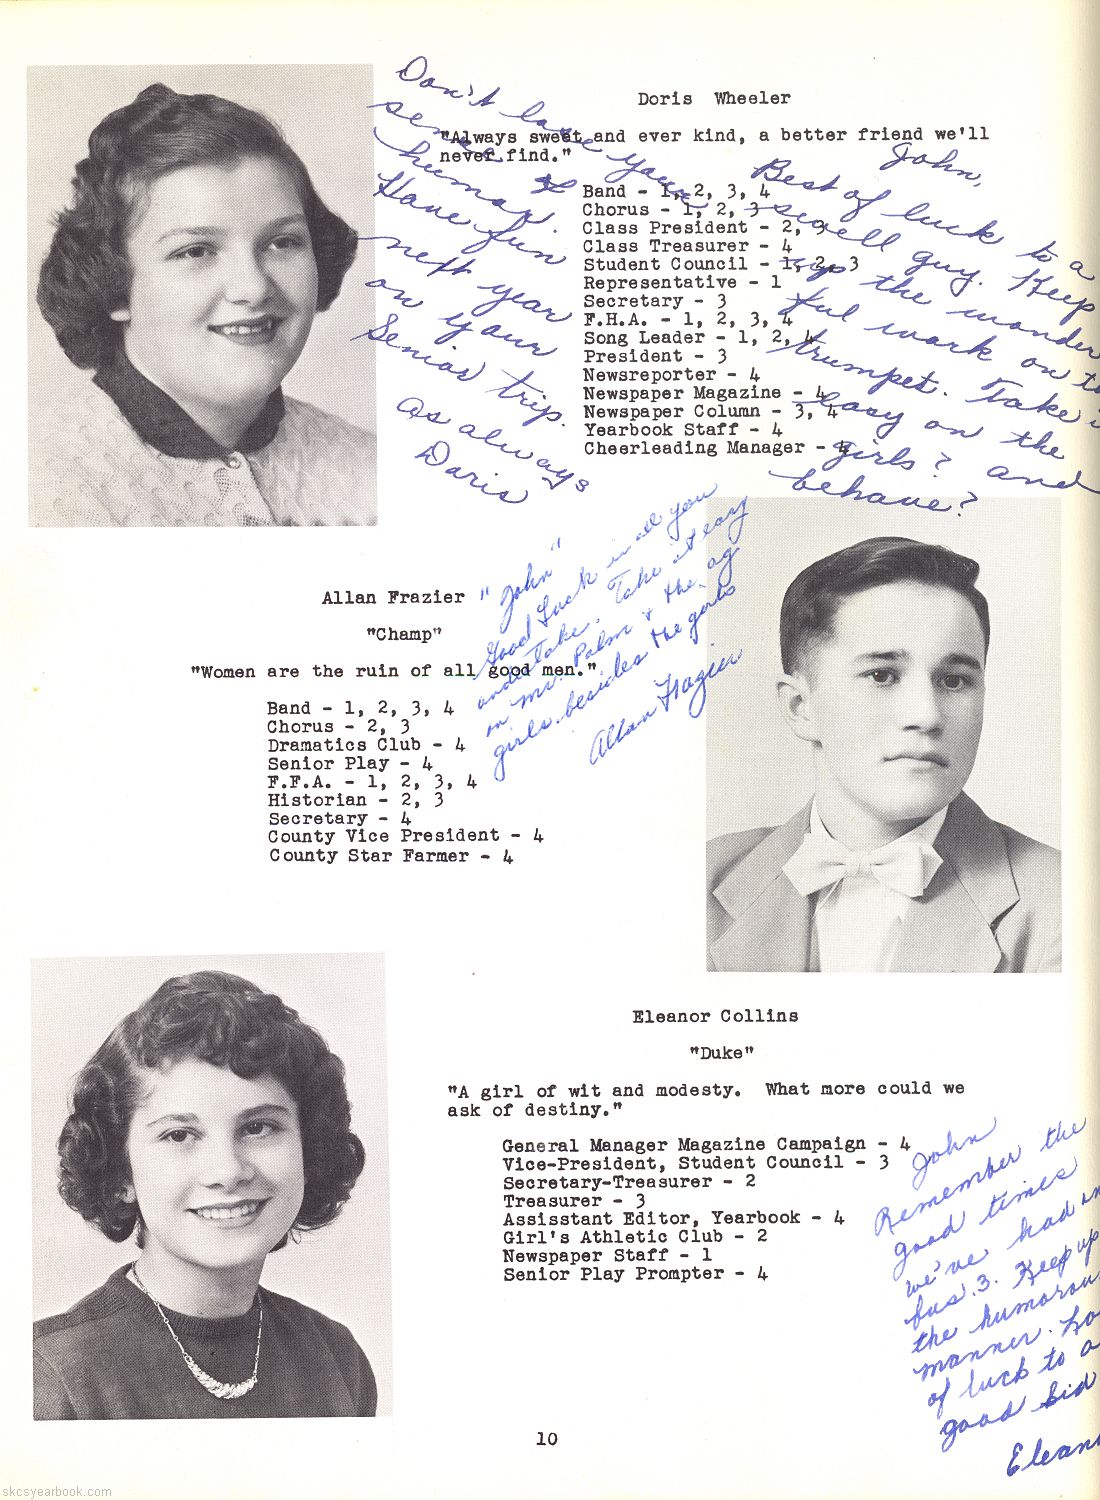 Doris Wheeler
"Always sweet and ever kind, a better friend we'll
never find."
Band - 1, 2, 3, 4
Chorus - 1, 2, 3
Class President - 2, 3
Class Treasurer - 4
Student Council - 1, 2, 3
Representative - 1
Secretary - 3
F.H.A. - 1, 2, 3, 4
Song Leader - 1, 2, 4
President - 3
Newsreporter - 4
Newspaper Magazine - 4
Newspaper Column - 3, 4
Yearbook Staff - 4
Cheerleading Manager - 4
John,
Best of luck to a
swell guy. Keep
up the wonder
ful work on t
trumpet. Take i
easy on the
girls? and
behave?
Don't lose your
sense of
humor.
Have fun
next year
on your
Senior trip.
As always
Doris
Allan Frazier
"Champ"
"Women are the ruin of all good men."
Band - 1, 2, 3, 4
Chorus - 2, 3
Dramatics Club - 4
Senior Play - 4
F.F.A. - 1, 2, 3, 4
Historian - 2, 3
Secretary - 4
County Vice President - 4
County Star Farmer - 4
"John"
Good Luck in all you
undertake. Take it easy
on Mr. Palm & the ag
girls besides the girls
Allan Frazier
Eleanor Collins
"Duke"
"A girl of wit and modesty. What more could we
ask of destiny."
General Manager Magazine Campaign - 4
Vice-President, Student Council - 3
Secretary-Treasurer - 2
Treasurer - 3
Assisstant Editor, Yearbook - 4
Girl's Athletic Club - 2
Newspaper Staff - 1
Senior Play Prompter - 4
John
Remember the
good times
we've had on
bus 3. Keep up
the humorou
manner. Lo
of luck to a
good kid
Elean
10
skcsyearbook.com